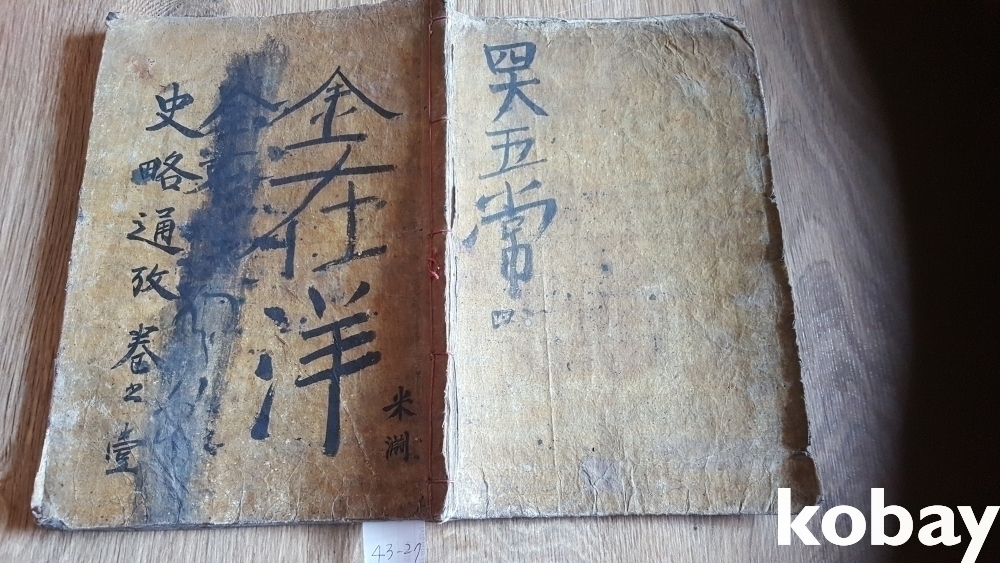 四大五常
四
米淵
金在洋
金
史略通攷 卷之壹
43-27
kobay